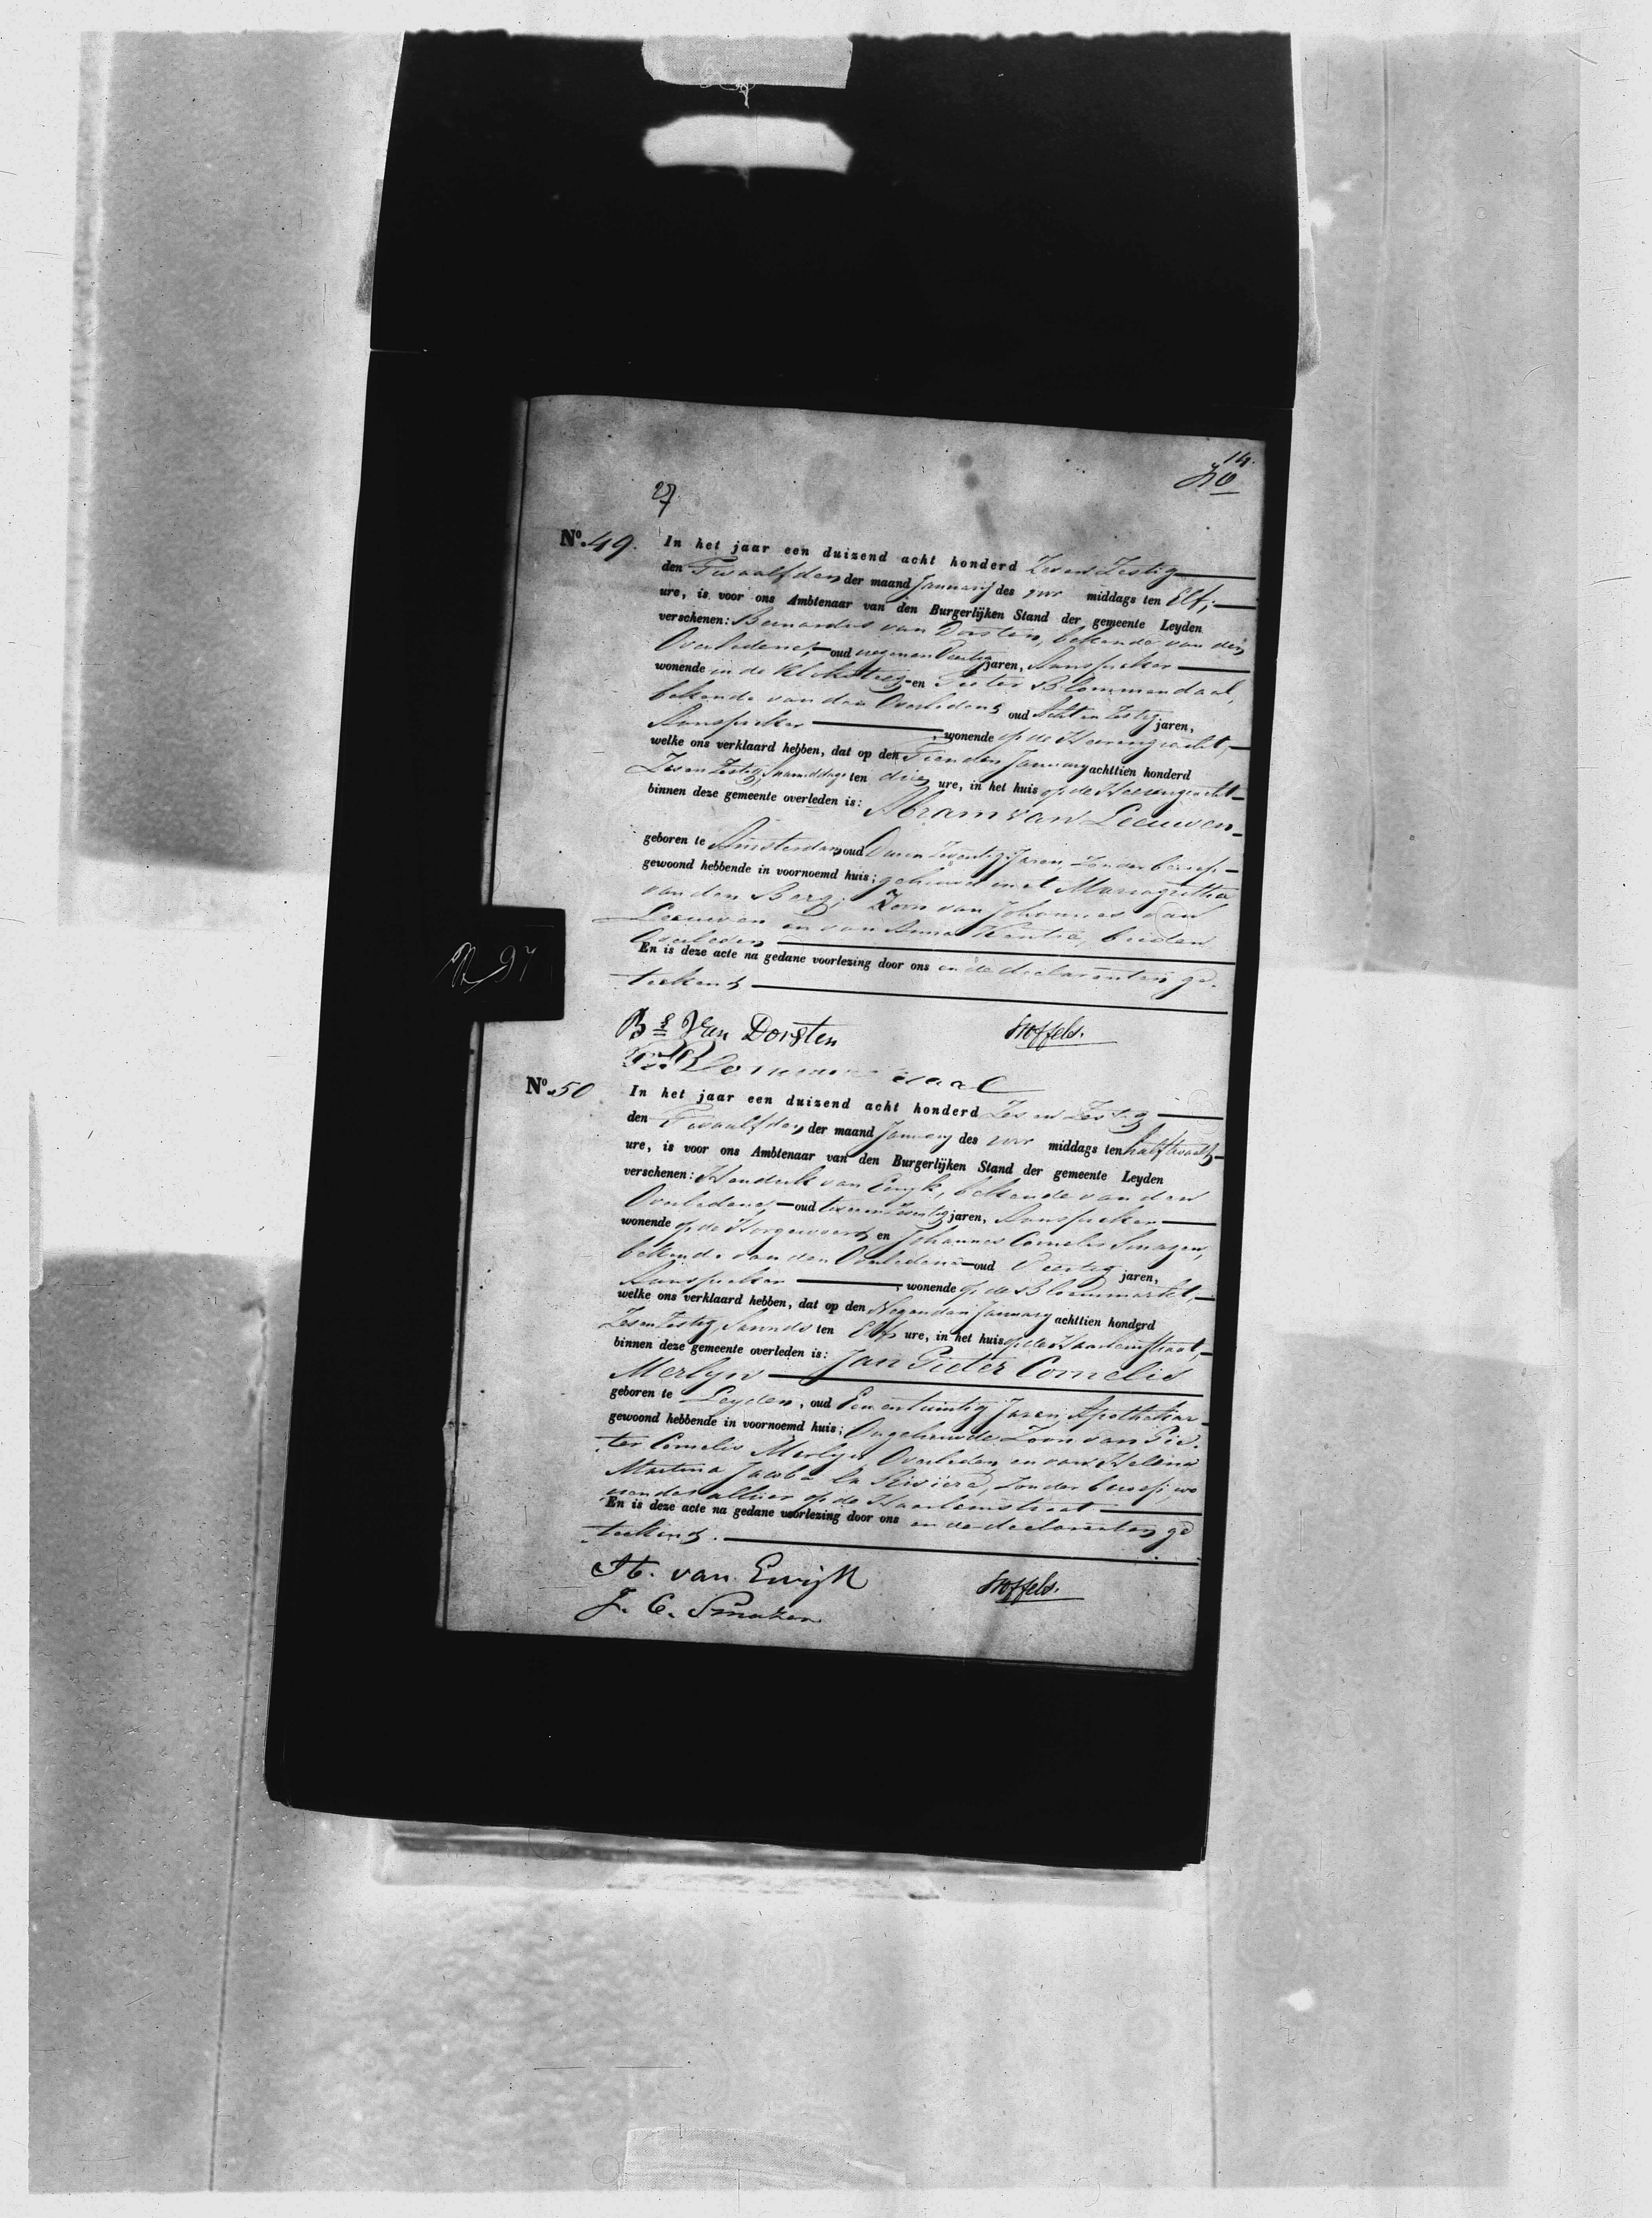 14.
40
27
No. 49. In het jaar een duizend acht honderd Zes en Zestig
den Twaalfden der maand January des voor middags ten Elf,
ure, is voor ons Ambtenaar van den Burgerlijken Stand der gemeente Leyden
verschenen: Bernardus van Dorsten, bekende van den
Overledene, oud negen en Veertig jaren, Aanspreker
wonende in de Kloksteeg en Pieter Blommendaal,
bekende van den Overledene oud Acht en Zestig jaren,
Aanspreker, wonende op de Heerengracht,
welke ons verklaard hebben, dat op den Tienden January achttien honderd
Zes en Zestig, 's namiddags ten drie ure, in het huis op de Heerengracht
binnen deze gemeente overleden is: Abram van Leeuwen
geboren te Amsterdam, oud en Zeventig Jaren, Zonder beroep
gewoond hebbende in voornoemd huis; gehuwd met Margaretha
van den Berg; Zoon van Johannes van
Leeuwen en van Anna, beiden
Overleden
En is deze acte na gedane voorlezing door ons en de declaranten ge-
teekend
Bs Van Dorsten Stoffels.
P. Blommendaal
No. 50 In het jaar een duizend acht honderd Zes en Zestig
den Twaalfden der maand January des voor middags ten half twaalf
ure, is voor ons Ambtenaar van den Burgerlijken Stand der gemeente Leyden
verschenen: Hendrik van Ewyk, bekende van den
Overledene, oud twee en Zeventig jaren, Aanspreker
wonende op de Hogewoerd, en Johannes Cornelis Smazen,
bekende van den Overledene oud Veertig jaren,
Aanspreker, wonende op de Bloemmarkt,
welke ons verklaard hebben, dat op den Negenden January achttien honderd
Zes en Zestig, 's avonds ten Elf ure, in het huis op de Haarlemstraat,
binnen deze gemeente overleden is: Jan Pieter Cornelis
Merlyn
geboren te Leyden, oud Een en twintig Jaren, Apothekar
gewoond hebbende in voornoemd huis; Ongehuwde Zoon van Pie-
ter Cornelis Merlyn, Overleden, en van Helena
Martina Jacoba la Rivière, zonder beroep, wo
nende alhier op de Haarlemstraat
En is deze acte na gedane voorlezing door ons en de declaranten ge
teekend.
H. van Ewijk Stoffels.
J. C. Smazen